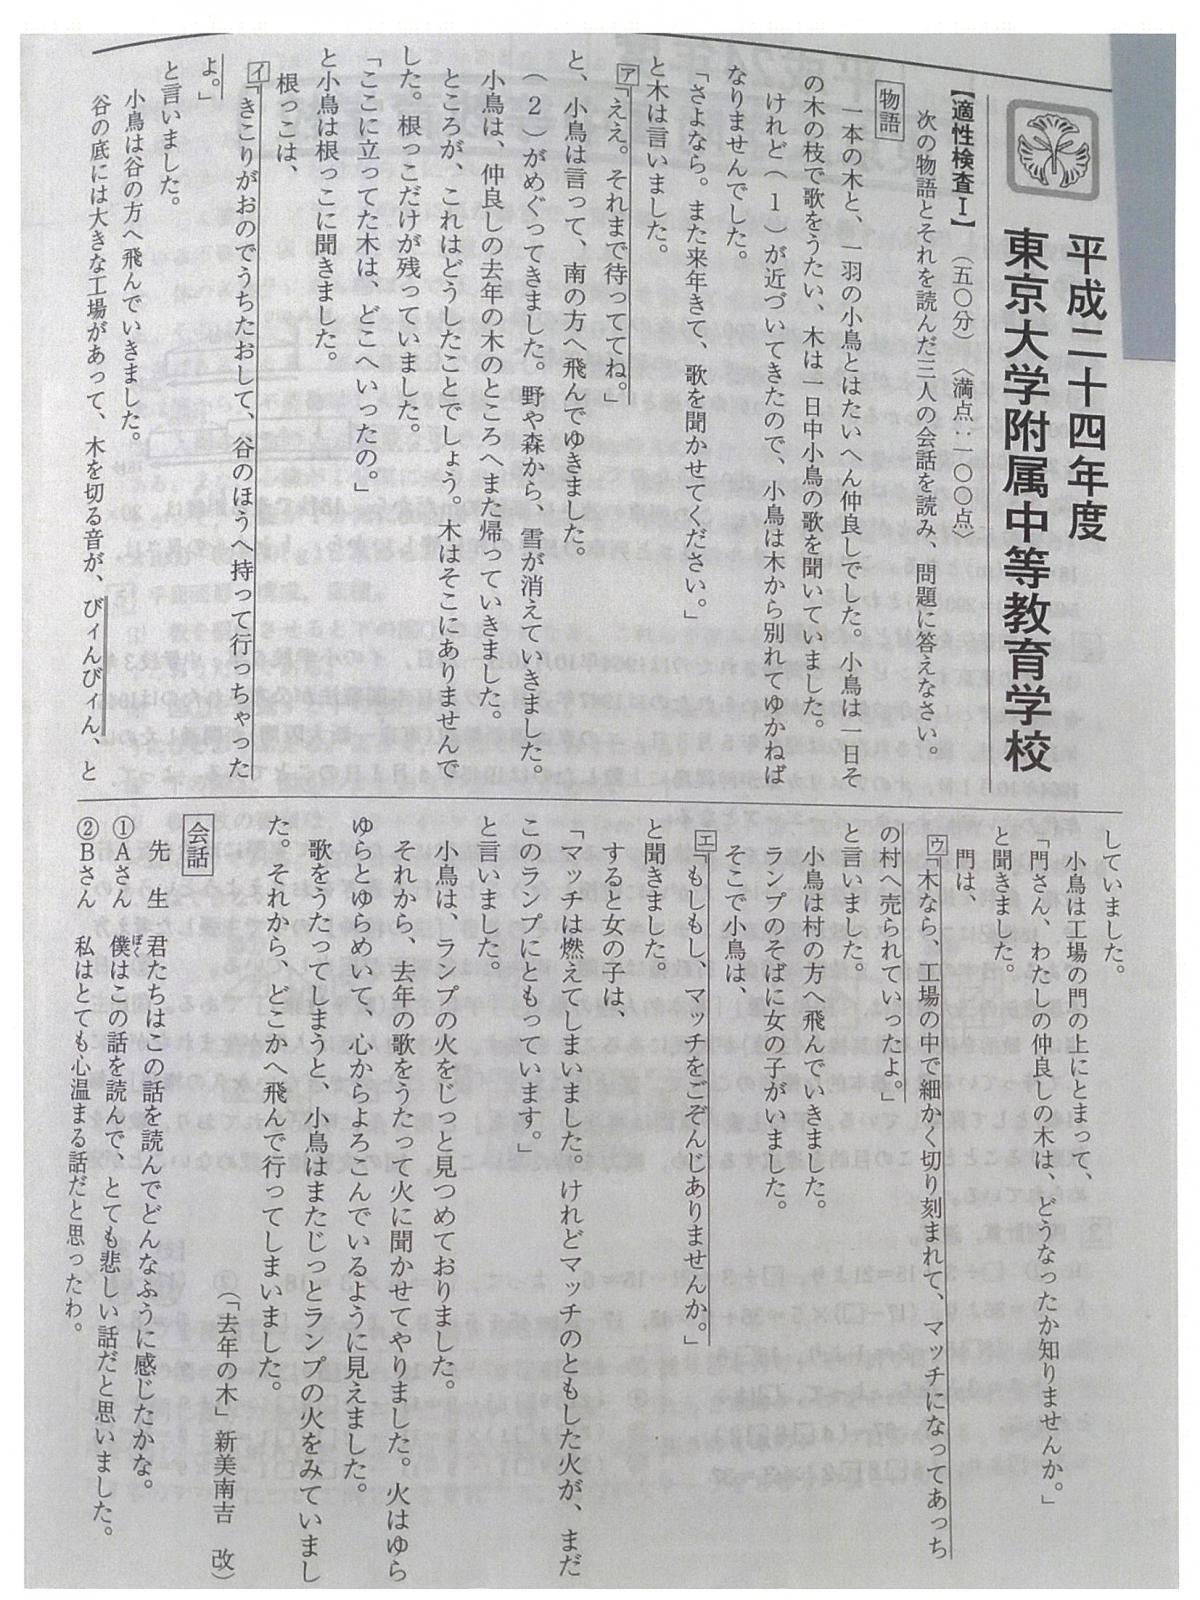 平成二十四年度
東京大学附属中等教育学校
【適性検査Ⅰ】（五〇分）〈満点：一〇〇点〉
次の物語とそれを読んだ三人の会話を読み、問題に答えなさい。
物語
一本の木と、一羽の小鳥とはたいへん仲良しでした。小鳥は一日そ
の木の枝で歌をうたい、木は一日中小鳥の歌を聞いていました。
けれど（１）が近づいてきたので、小鳥は木から別れてゆかねば
なりませんでした。
「さよなら。また来年きて、歌を聞かせてください。」
と木は言いました。
ア「ええ。それまで待っててね。」
と、小鳥は言って、南の方へ飛んでゆきました。
（２）がめぐってきました。野や森から、雪が消えていきました。
小鳥は、仲良しの去年の木のところへまた帰っていきました。
ところが、これはどうしたことでしょう。木はそこにありませんで
した。根っこだけが残っていました。
「ここに立ってた木は、どこへいったの。」
と小鳥は根っこに聞きました。
根っこは、
イ「きこりがおのでうちたおして、谷のほうへ持って行っちゃった
よ。」
と言いました。
小鳥は谷の方へ飛んでいきました。
谷の底には大きな工場があって、木を切る音が、びィんびィん、と
していました。
小鳥は工場の門の上にとまって、
「門さん、わたしの仲良しの木は、どうなったか知りませんか。」
と聞きました。
門は、
ウ「木なら、工場の中で細かく切り刻まれて、マッチになってあっち
の村へ売られていったよ。」
と言いました。
小鳥は村の方へ飛んでいきました。
ランプのそばに女の子がいました。
そこで小鳥は、
エ「もしもし、マッチをごぞんじありませんか。」
と聞きました。
すると女の子は、
「マッチは燃えてしまいました。けれどマッチのともした火が、まだ
このランプにともっています。」
と言いました。
小鳥は、ランプの火をじっと見つめておりました。
それから、去年の歌をうたって火に聞かせてやりました。火はゆら
ゆらとゆらめいて、心からよろこんでいるように見えました。
歌をうたってしまうと、小鳥はまたじっとランプの火をみていまし
た。それから、どこかへ飛んで行ってしまいました。
（「去年の木」新美南吉　改）
会話
先　生　君たちはこの話を読んでどんなふうに感じたかな。
①Ａさん　僕はこの話を読んで、とても悲しい話だと思いました。
②Ｂさん　私はとても心温まる話だと思ったわ。